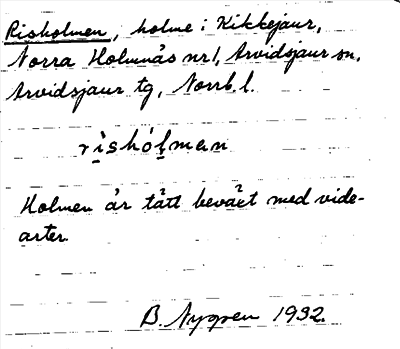 Risholmen, holme i Kikkejaur,
Norra Holmnäs nr 1, Arvidsjaur sn,
Arvidsjaur tg, Norrb. l.
rìshól̥man
Holmen är tätt beväxt med vide-
arter.
B. Nygren 1932.